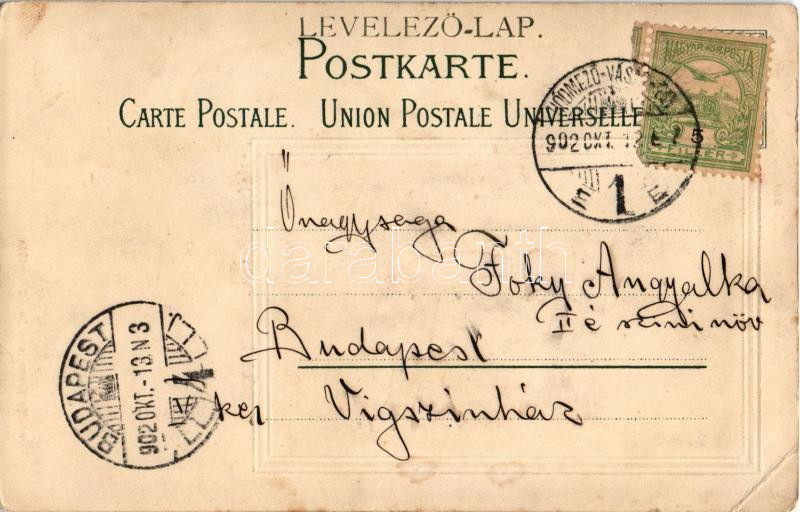 LEVELEZŐ-LAP.
POSTKARTE.
CARTE POSTALE. UNION POSTALE UNIVERSELLE
MAGYAR KIR. POSTA
5
FILLÉR
902 OKT. 12
1
Őnagysága
Foky Angyalka
II é szini növ
Budapest
V ker Vigszinház
BUDAPEST
902 OKT.-13.N3
darabanth